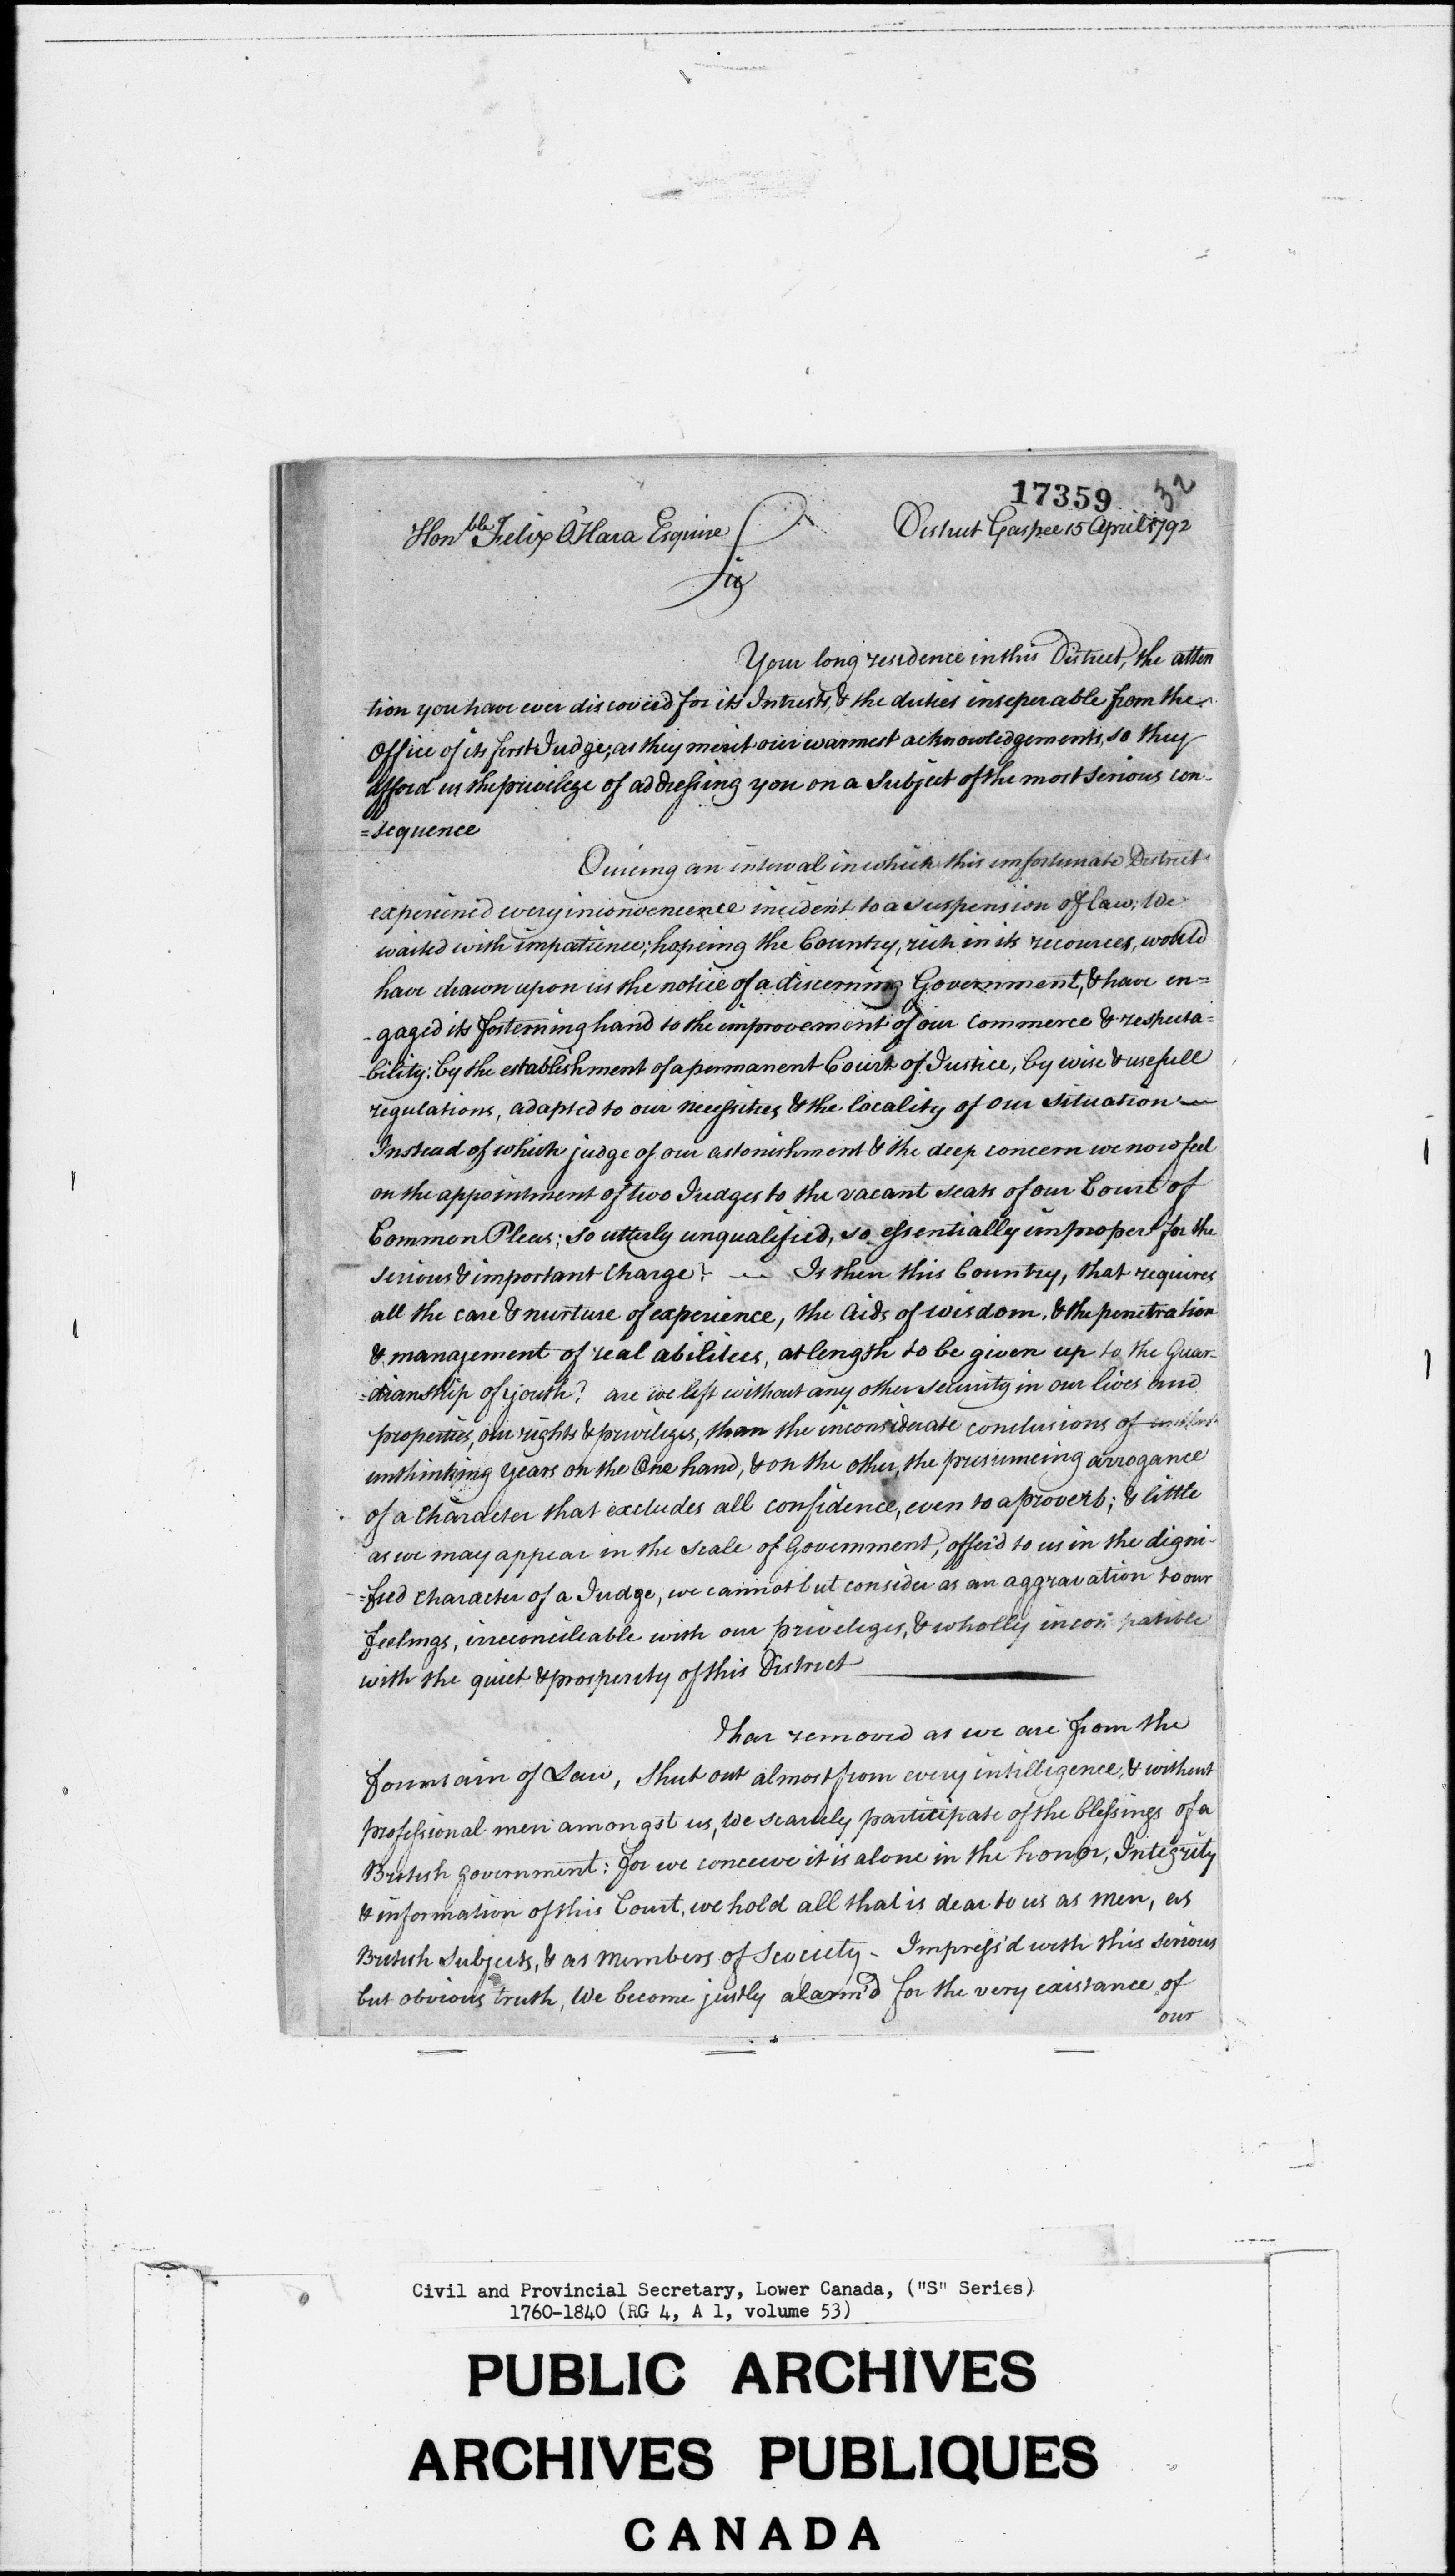 17359 32
Hon.ble Felix O'Hara Esquire District Gaspee 15 April 1792
Sir
Your long residence in this District, the atten
tion you have ever discoverd for its Intrests, & the duties inseperable from the
Office of its first Judge; as they merit our warmest acknowledgements, so they
afford us the privilege of addressing you on a Subject of the most serious con-
=sequence
During an interval in which this unfortunate District
experienc'd every inconvenience incident to a suspension of law; We
waited with impatience; hopeing the Country, rich in its recources, would
have drawn upon us the notice of a discerning Government, & have en=
-gaged its fosterning hand to the improvement of our Commerce & respecta=
-bility: by the establishment of a permanent Court of Justice, by wise & usefull
regulations, adapted to our necessities & the locality of our situation —
Instead of which judge of our astonishment & the deep concern we now feel
on the appointment of two Judges to the vacant seats of our Court of
Common Pleas; so utterly unqualified, so essentially improper for the
serious & important Charge? — Is then this Country, that requires
all the care & nurture of experience, the Aids of wisdom, & the penetration
& management of real abilities, at length to be given up to the Guar-
=dianship of youth? are we left without any other security in our lives and
properties, our rights & privileges, than the inconsiderate conclusions of
unthinking Years on the One hand, & on the other, the presumeing arrogance
of a Character that excludes all confidence, even to a proverb; & little
as we may appear in the scale of Government, offer'd to us in the digni-
=fied Character of a Judge, we cannot but consider as an aggravation to our
feelings, irreconcileable with our privileges, & wholly incompatible
with the quiet & prosperity of this District —
Thar removed as we are from the
fountain of Law, shut out almost from every intilligence, & without
professional men amongst us, we scarcely participate of the blessings of a
British Government: for we conceive it is alone in the honor, Integrity
& information of this Court, we hold all that is dear to us as Men, as
British Subjects, & as Members of Society - Impress'd with this serious
but obvious truth, We become justly alarm'd for the very existance of
our
Civil and Provincial Secretary, Lower Canada, ("S" Series)
1760-1840 (RG 4, A 1, volume 53)
PUBLIC ARCHIVES
ARCHIVES PUBLIQUES
CANADA